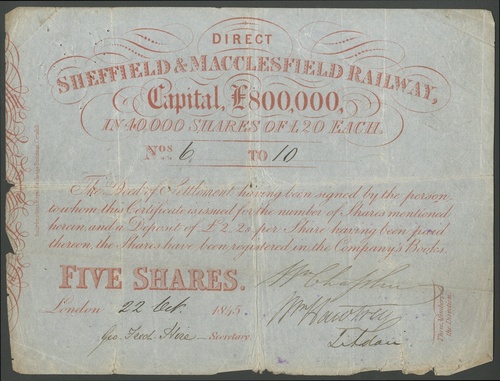 DIRECT
SHEFFIELD & MACCLESFIELD RAILWAY,
Capital, £800,000,
IN 40,000 SHARES OF £20 EACH.
Nos 6 TO 10
The Deed of Settlement having been signed by the person
to whom this Certificate is issued for the number of Shares mentioned
herein, and a Deposit of £2.2s per Share having been paid
thereon, the Shares have been registered in the Company's Books.
FIVE SHARES.
London 22 Oct 1845.
Secretary.
Wm Chaplin